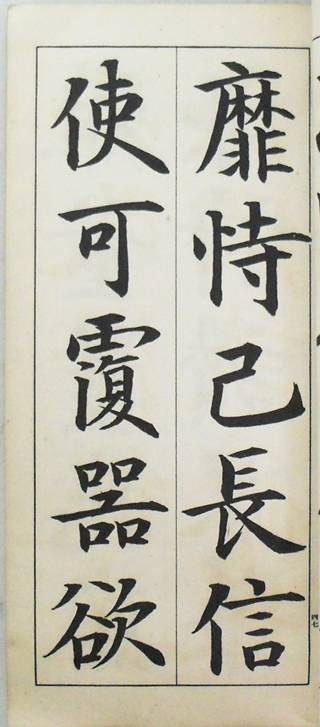 靡恃己長信
使可覆器欲
四七